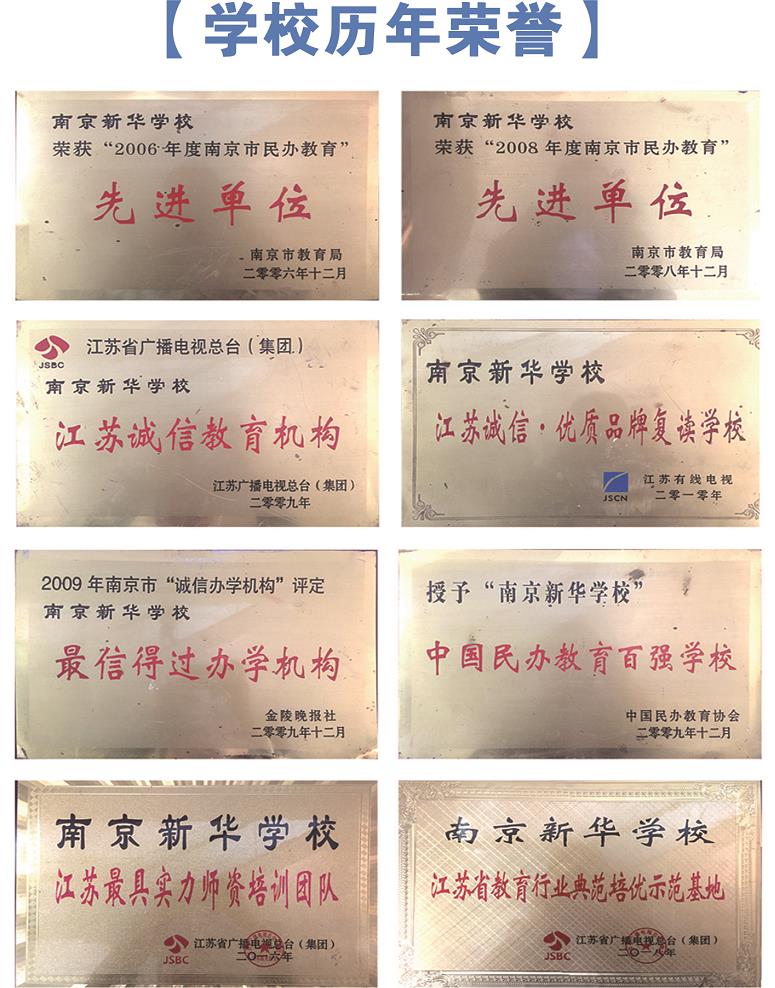 【学校历年荣誉】
南京新华学校
荣获“2006年度南京市民办教育”
先进单位
南京市教育局
二零零六年十二月
南京新华学校
荣获“2008年度南京市民办教育”
先进单位
南京市教育局
二零零八年十二月
JSBC
江苏省广播电视总台（集团）
南京新华学校
江苏诚信教育机构
江苏广播电视总台（集团）
二零零九年
南京新华学校
江苏诚信·优质品牌复读学校
JSCN
江苏有线电视
二零一零年
2009年南京市“诚信办学机构”评定
南京新华学校
最信得过办学机构
金陵晚报社
二零零九年十二月
授予“南京新华学校”
中国民办教育百强学校
中国民办教育协会
二零零九年十二月
南京新华学校
江苏最具实力师资培训团队
JSBC
江苏省广播电视总台（集团）
二〇一六年
南京新华学校
江苏省教育行业典范培优示范基地
JSBC
江苏省广播电视总台（集团）
二〇一八年